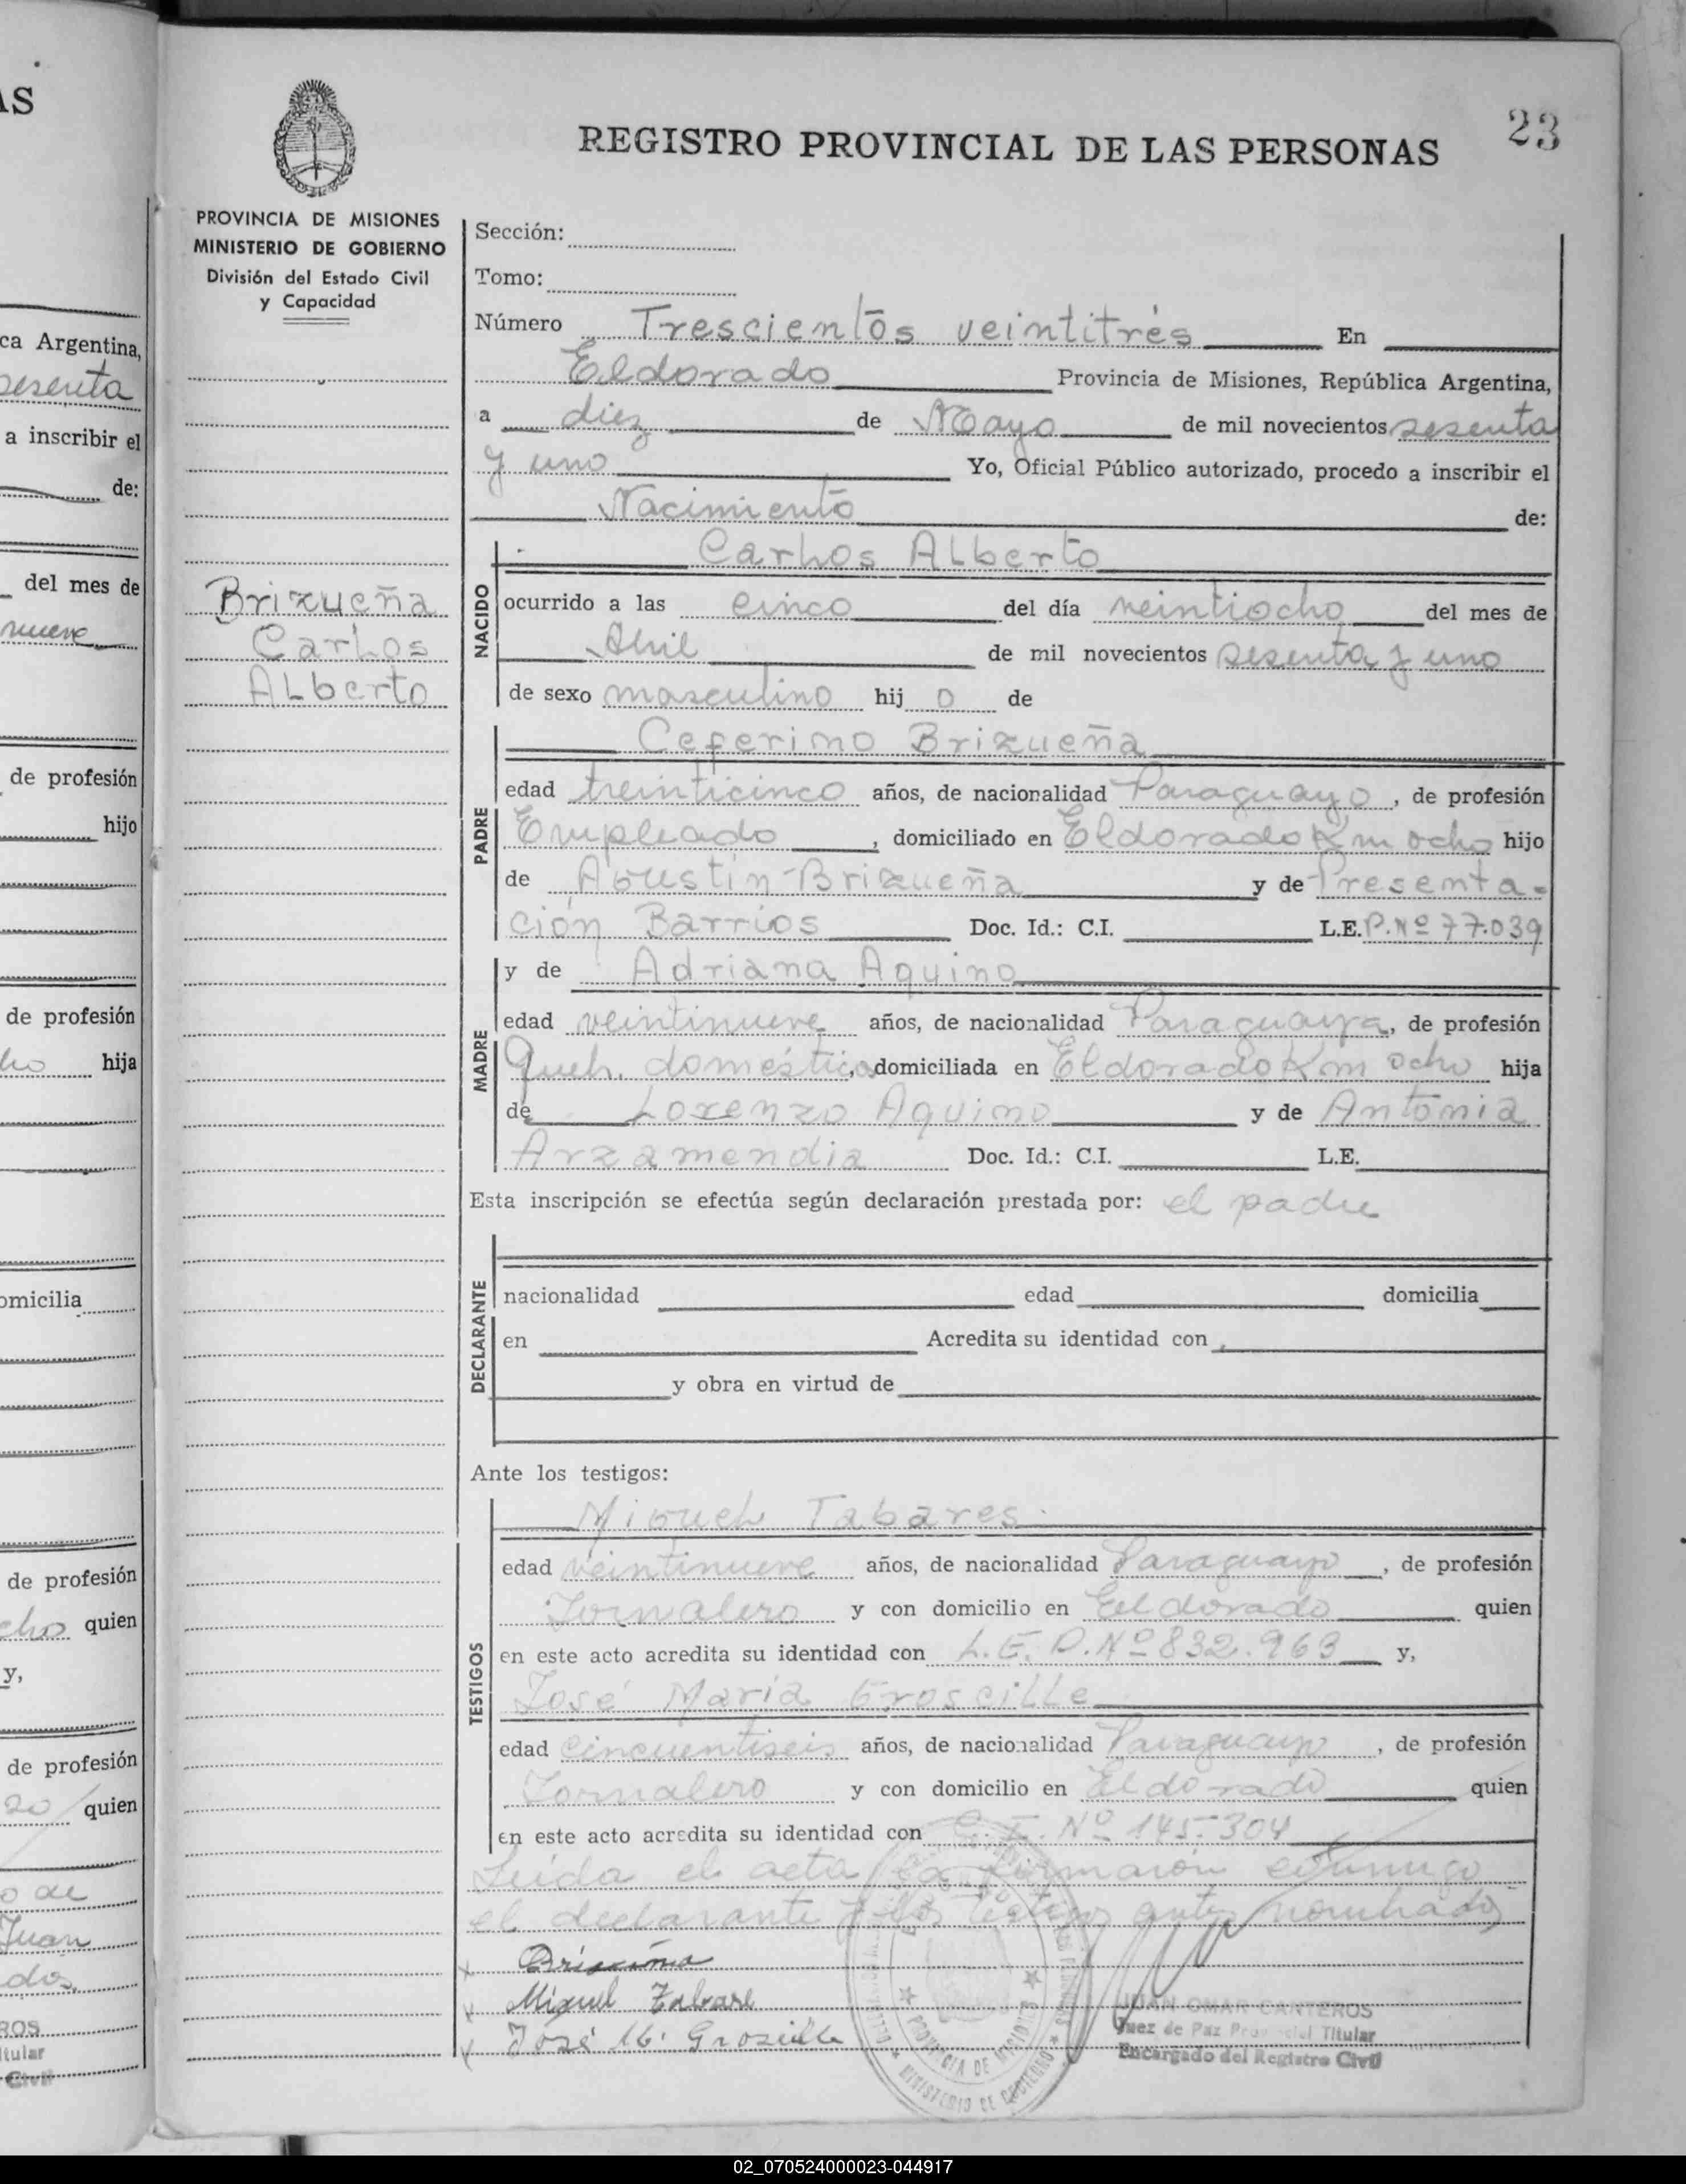 AS
ca Argentina,
sesenta
a inscribir el
de:
del mes de
nueve
de profesión
hijo
de profesión
cho hija
omicilia
de profesión
cho quien
y,
de profesión
20 quien
o de
Juan
dos
ROS
itular
Civil
23
REGISTRO PROVINCIAL DE LAS PERSONAS
PROVINCIA DE MISIONES
MINISTERIO DE GOBIERNO
División del Estado Civil
y Capacidad
Brizueña
Carlos
Alberto
Sección:
Tomo:
Número Trescientos veintitrés En
Eldorado Provincia de Misiones, República Argentina,
a diez de Mayo de mil novecientos sesenta
y uno Yo, Oficial Público autorizado, procedo a inscribir el
Nacimiento de:
NACIDO
Carlos Alberto
ocurrido a las cinco del día veintiocho del mes de
Abril de mil novecientos sesenta y uno
de sexo masculino hij o de
PADRE
Ceferino Brizueña
edad treinticinco años, de nacionalidad Paraguayo, de profesión
Empleado, domiciliado en Eldorado Km ocho hijo
de Agustín Brizueña y de Presenta-
ción Barrios Doc. Id.: C.I. L.E. P. Nº 77.039
MADRE
y de Adriana Aquino
edad veintinueve años, de nacionalidad Paraguaya, de profesión
Queh. doméstica, domiciliada en Eldorado Km ocho hija
de Lorenzo Aquino y de Antonia
Arzamendia Doc. Id.: C.I. L.E.
Esta inscripción se efectúa según declaración prestada por: el padre
DECLARANTE
nacionalidad edad domicilia
en Acredita su identidad con
y obra en virtud de
Ante los testigos:
TESTIGOS
Miguel Tabares
edad veintinueve años, de nacionalidad Paraguayo, de profesión
Jornalero y con domicilio en Eldorado quien
en este acto acredita su identidad con L.E. P. Nº 832.963 y,
José María Groscille
edad cincuentiseis años, de nacionalidad Paraguayo, de profesión
Jornalero y con domicilio en Eldorado quien
en este acto acredita su identidad con C.I. Nº 145.304
Leida el acta la firmaron conmigo
el declarante y los testigos antes nombrados
Miguel Tabare
José M. Groscille
PROVINCIA DE MISIONES
MINISTERIO DE GOBIERNO
JUAN OMAR CANTEROS
Juez de Paz Provincial Titular
Encargado del Registro Civil
02_070524000023-044917